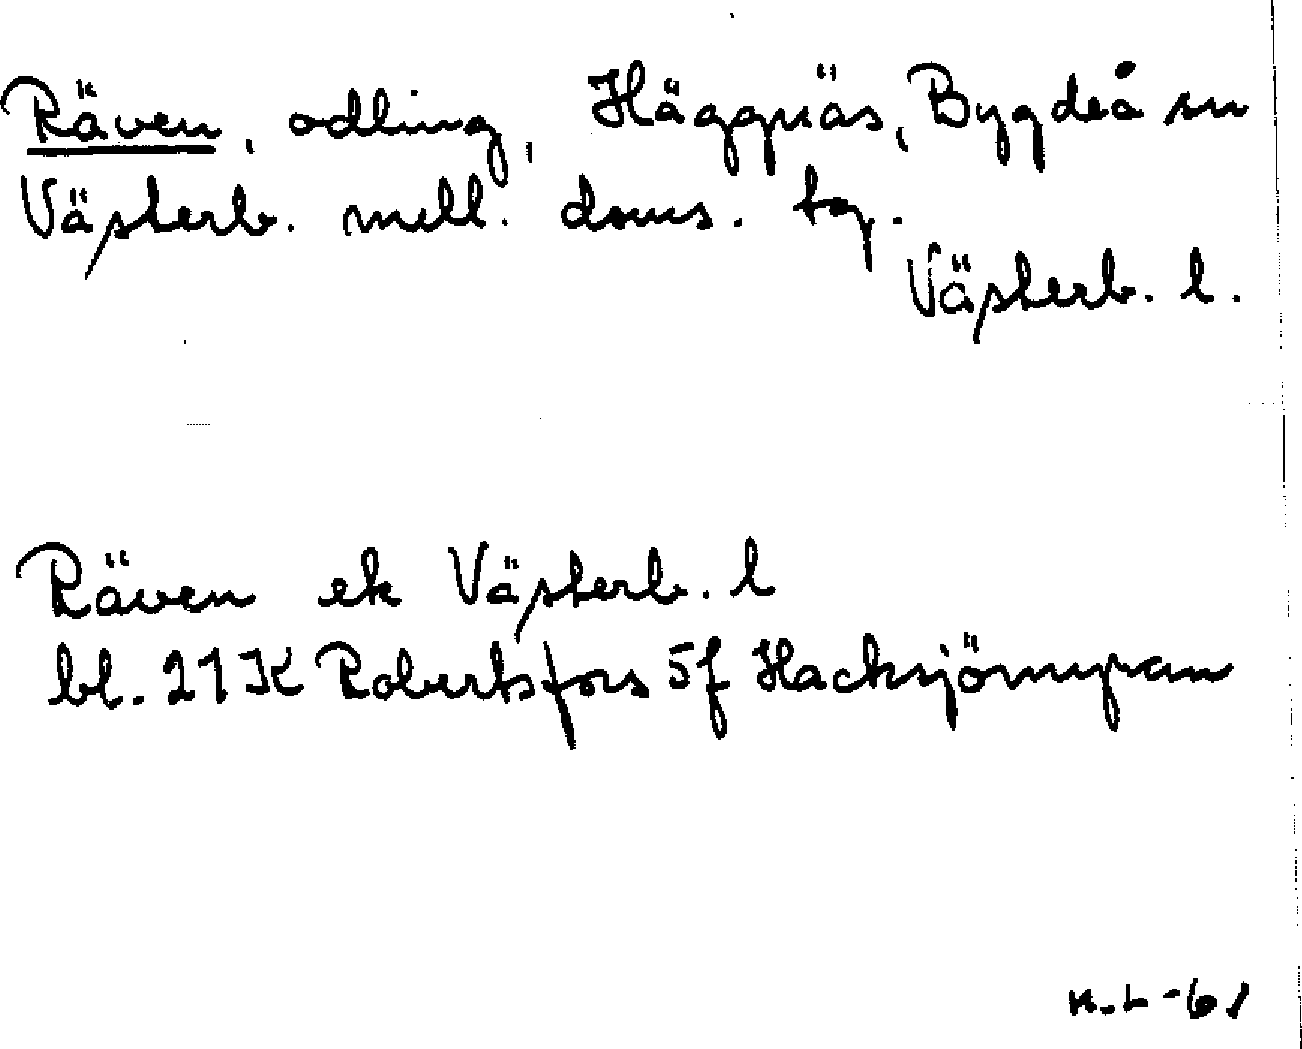 Räven, odling, Häggnäs, Bygdeå sn
Västerb. mell. doms. tg.
Västerb. l.
Räven ek Västerb. l
bl. 21K Robertsfors 5f Hacksjömyran
K.L-61